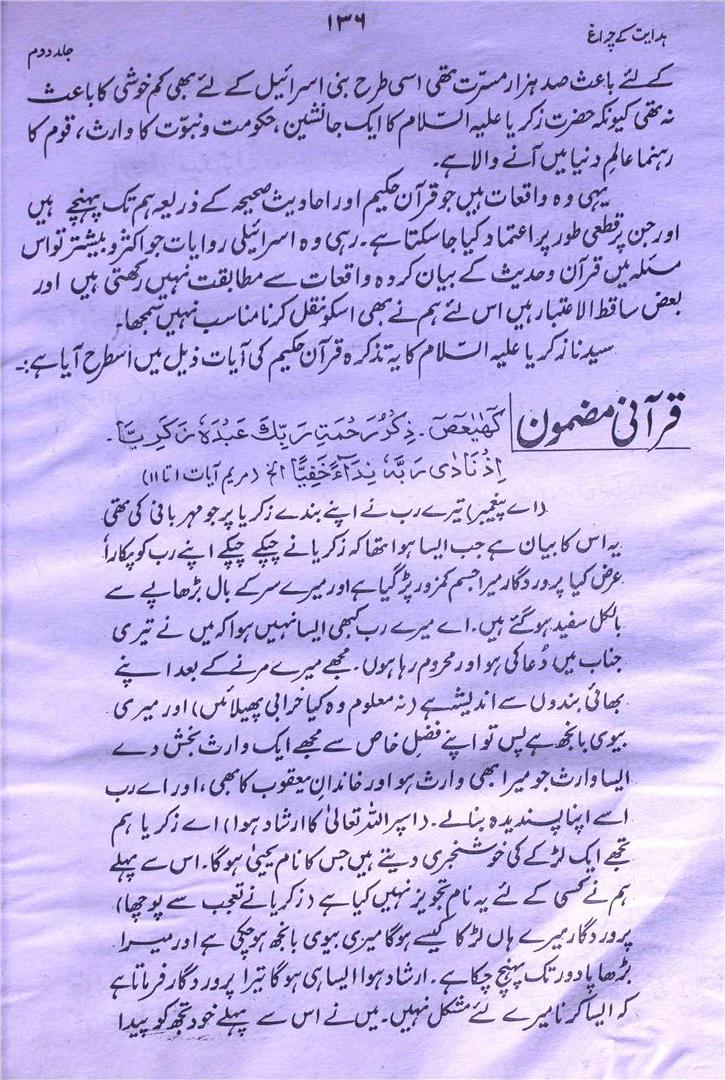 ۱۳۶
ہدایت کے چراغ
جلد دوم
کے لئے باعث صد ہزار مسرّت تھی اسی طرح بنی اسرائیل کے لئے بھی کم خوشی کا باعث
نہ تھی کیونکہ حضرت زکریا علیہ السّلام کا ایک جانشین، حکومت ونبوّت کا وارث، قوم کا
رہنما عالمِ دنیا میں آنے والا ہے۔
یہی وہ واقعات ہیں جو قرآن حکیم اور احادیث صحیحہ کے ذریعہ ہم تک پہنچے ہیں
اور جن پر قطعی طور پر اعتماد کیا جاسکتا ہے۔ رہی وہ اسرائیلی روایات جو اکثر و بیشتر تو اس
مسئلہ میں قرآن وحدیث کے بیان کردہ واقعات سے مطابقت نہیں رکھتی ہیں اور
بعض ساقط الاعتبار ہیں اس لئے ہم نے بھی اسکو نقل کرنا مناسب نہیں سمجھا۔
سیدنا زکریا علیہ السّلام کا یہ تذکرہ قرآن حکیم کی آیات ذیل میں اسطرح آیا ہے:۔
قرآنی مضمون
كهيعص۔ ذِكْرُ رَحْمَةِ رَبِّكَ عَبْدَهٗ زَكَرِيَّا۔
اِذْ نَادٰى رَبَّهٗ نِدَآءً خَفِيًّا الخ (مریم آیات ۱ تا ۱۱)
(اے پیغمبر) تیرے رب نے اپنے بندے زکریا پر جو مہربانی کی تھی
یہ اس کا بیان ہے جب ایسا ہوا تھا کہ زکریا نے چپکے چپکے اپنے رب کو پکارا
عرض کیا پروردگار میرا جسم کمزور پڑ گیا ہے اور میرے سر کے بال بڑھاپے سے
بالکل سفید ہو گئے ہیں۔ اے میرے رب کبھی ایسا نہیں ہوا کہ میں نے تیری
جناب میں دُعا کی ہو اور محروم رہا ہوں۔ مجھے میرے مرنے کے بعد اپنے
بھائی بندوں سے اندیشہ ہے (نہ معلوم وہ کیا خرابی پھیلائیں) اور میری
بیوی بانجھ ہے پس تو اپنے فضلِ خاص سے مجھے ایک وارث بخش دے
ایسا وارث جو میرا بھی وارث ہو اور خاندانِ یعقوب کا بھی، اور اے رب
اسے اپنا پسندیدہ بنالے۔ (اسپر اللہ تعالیٰ کا ارشاد ہوا) اے زکریا ہم
تجھے ایک لڑکے کی خوشخبری دیتے ہیں جس کا نام یحییٰ ہوگا۔ اس سے پہلے
ہم نے کسی کے لئے یہ نام تجویز نہیں کیا ہے (زکریا نے تعجب سے پوچھا)
پروردگار میرے ہاں لڑکا کیسے ہوگا میری بیوی بانجھ ہوچکی ہے اور میرا
بڑھاپا دور تک پہنچ چکا ہے۔ ارشاد ہوا ایسا ہی ہوگا تیرا پروردگار فرماتا ہے
کہ ایسا کرنا میرے لئے مشکل نہیں۔ میں نے اس سے پہلے خود تجھ کو پیدا